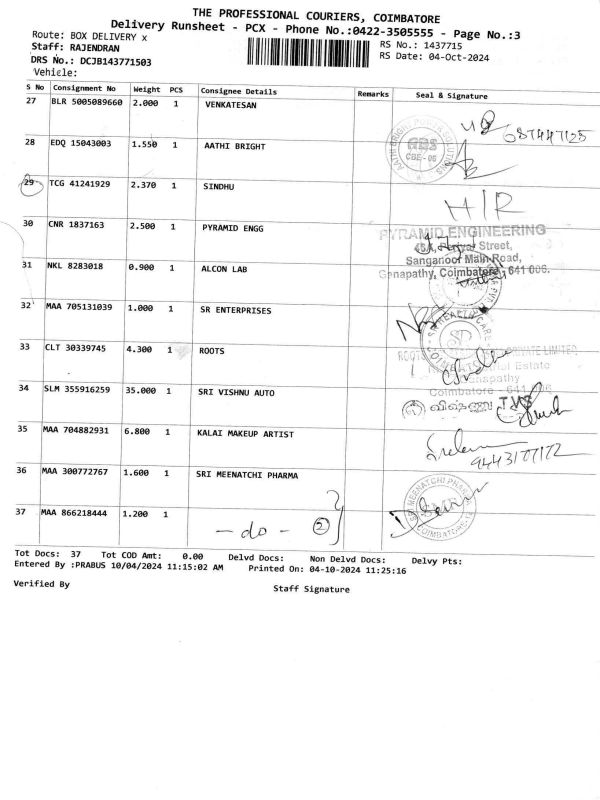 THE PROFESSIONAL COURIERS, COIMBATORE
Delivery Runsheet - PCX - Phone No.:0422-3505555 - Page No.:3
Route: BOX DELIVERY x
RS No.: 1437715
Staff: RAJENDRAN
RS Date: 04-Oct-2024
DRS No.: DCJB143771503
Vehicle:
S No Consignment No Weight PCS Consignee Details Remarks Seal & Signature
27 BLR 5005089660 2.000 1 VENKATESAN
28 EDQ 15043003 1.550 1 AATHI BRIGHT
GBS
CBE-06
29 TCG 41241929 2.370 1 SINDHU H/R
30 CNR 1837163 2.500 1 PYRAMID ENGG
PYRAMID ENGINEERING
Street,
Sanganoor Main Road,
Ganapathy, Coimbatore - 641 006.
31 NKL 8283018 0.900 1 ALCON LAB
32 MAA 705131039 1.000 1 SR ENTERPRISES
33 CLT 30339745 4.300 1 ROOTS
ROOTS PRIVATE LIMITED
Estate
Ganapathy
Coimbatore - 641 006
34 SLM 355916259 35.000 1 SRI VISHNU AUTO
விஷ்ணு TVS
35 MAA 704882931 6.800 1 KALAI MAKEUP ARTIST
9443177172
36 MAA 300772767 1.600 1 SRI MEENATCHI PHARMA
37 MAA 866218444 1.200 1 - do - 2
Tot Docs: 37 Tot COD Amt: 0.00 Delvd Docs: Non Delvd Docs: Delvy Pts:
Entered By :PRABUS 10/04/2024 11:15:02 AM Printed On: 04-10-2024 11:25:16
Verified By
Staff Signature